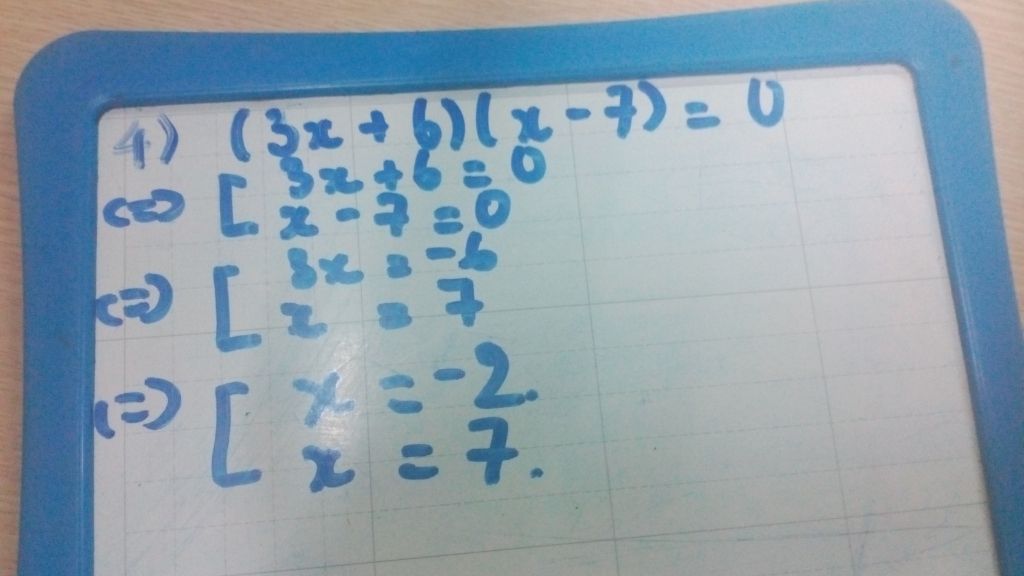 4) (3x + 6)(x - 7) = 0
<=> [ 3x + 6 = 0
x - 7 = 0
<=> [ 3x = -6
x = 7
<=> [ x = -2.
x = 7.